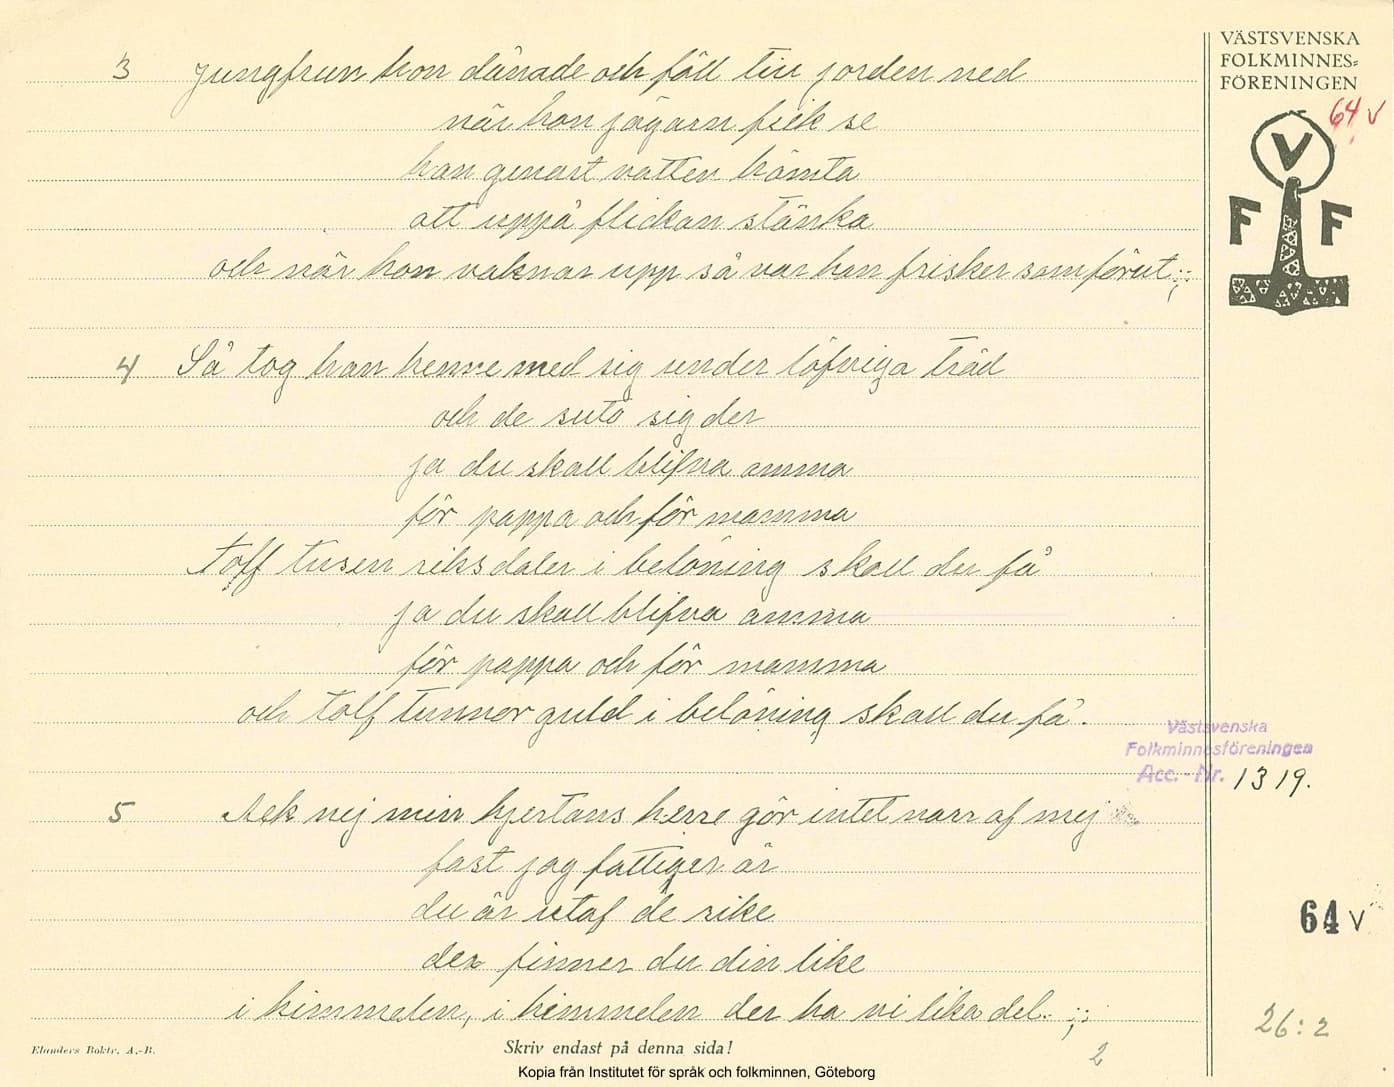 VÄSTSVENSKA
FOLKMINNES=
FÖRENINGEN
64 v
V
F F
3 Jungfrun hon dånade och föll till jorden ned
när hon jägarn fick se
han genast vatten hämta
att uppå flickan stänka
och när hon vaknar upp så var hon frisker som förut ;:
4 Så tog han henne med sig under löfviga träd
och de suto sig der
ja du skall blifva amma
för pappa och för mamma
tolf tusen riksdaler i belöning skall du få
ja du skall blifva amma
för pappa och för mamma
och tolf tunnor guld i belöning skall du få.
Västsvenska
Folkminnesföreningen
Acc.-Nr. 1319.
5 Ack nej min hjertans herre gör intet narr af mej
fast jag fattiger är
du är utaf de rike
der finner du din like
i himmelen, i himmelen der ha vi lika del. ;:
64 v
26:2
2
Elanders Boktr. A.-B.
Skriv endast på denna sida!
Kopia från Institutet för språk och folkminnen, Göteborg